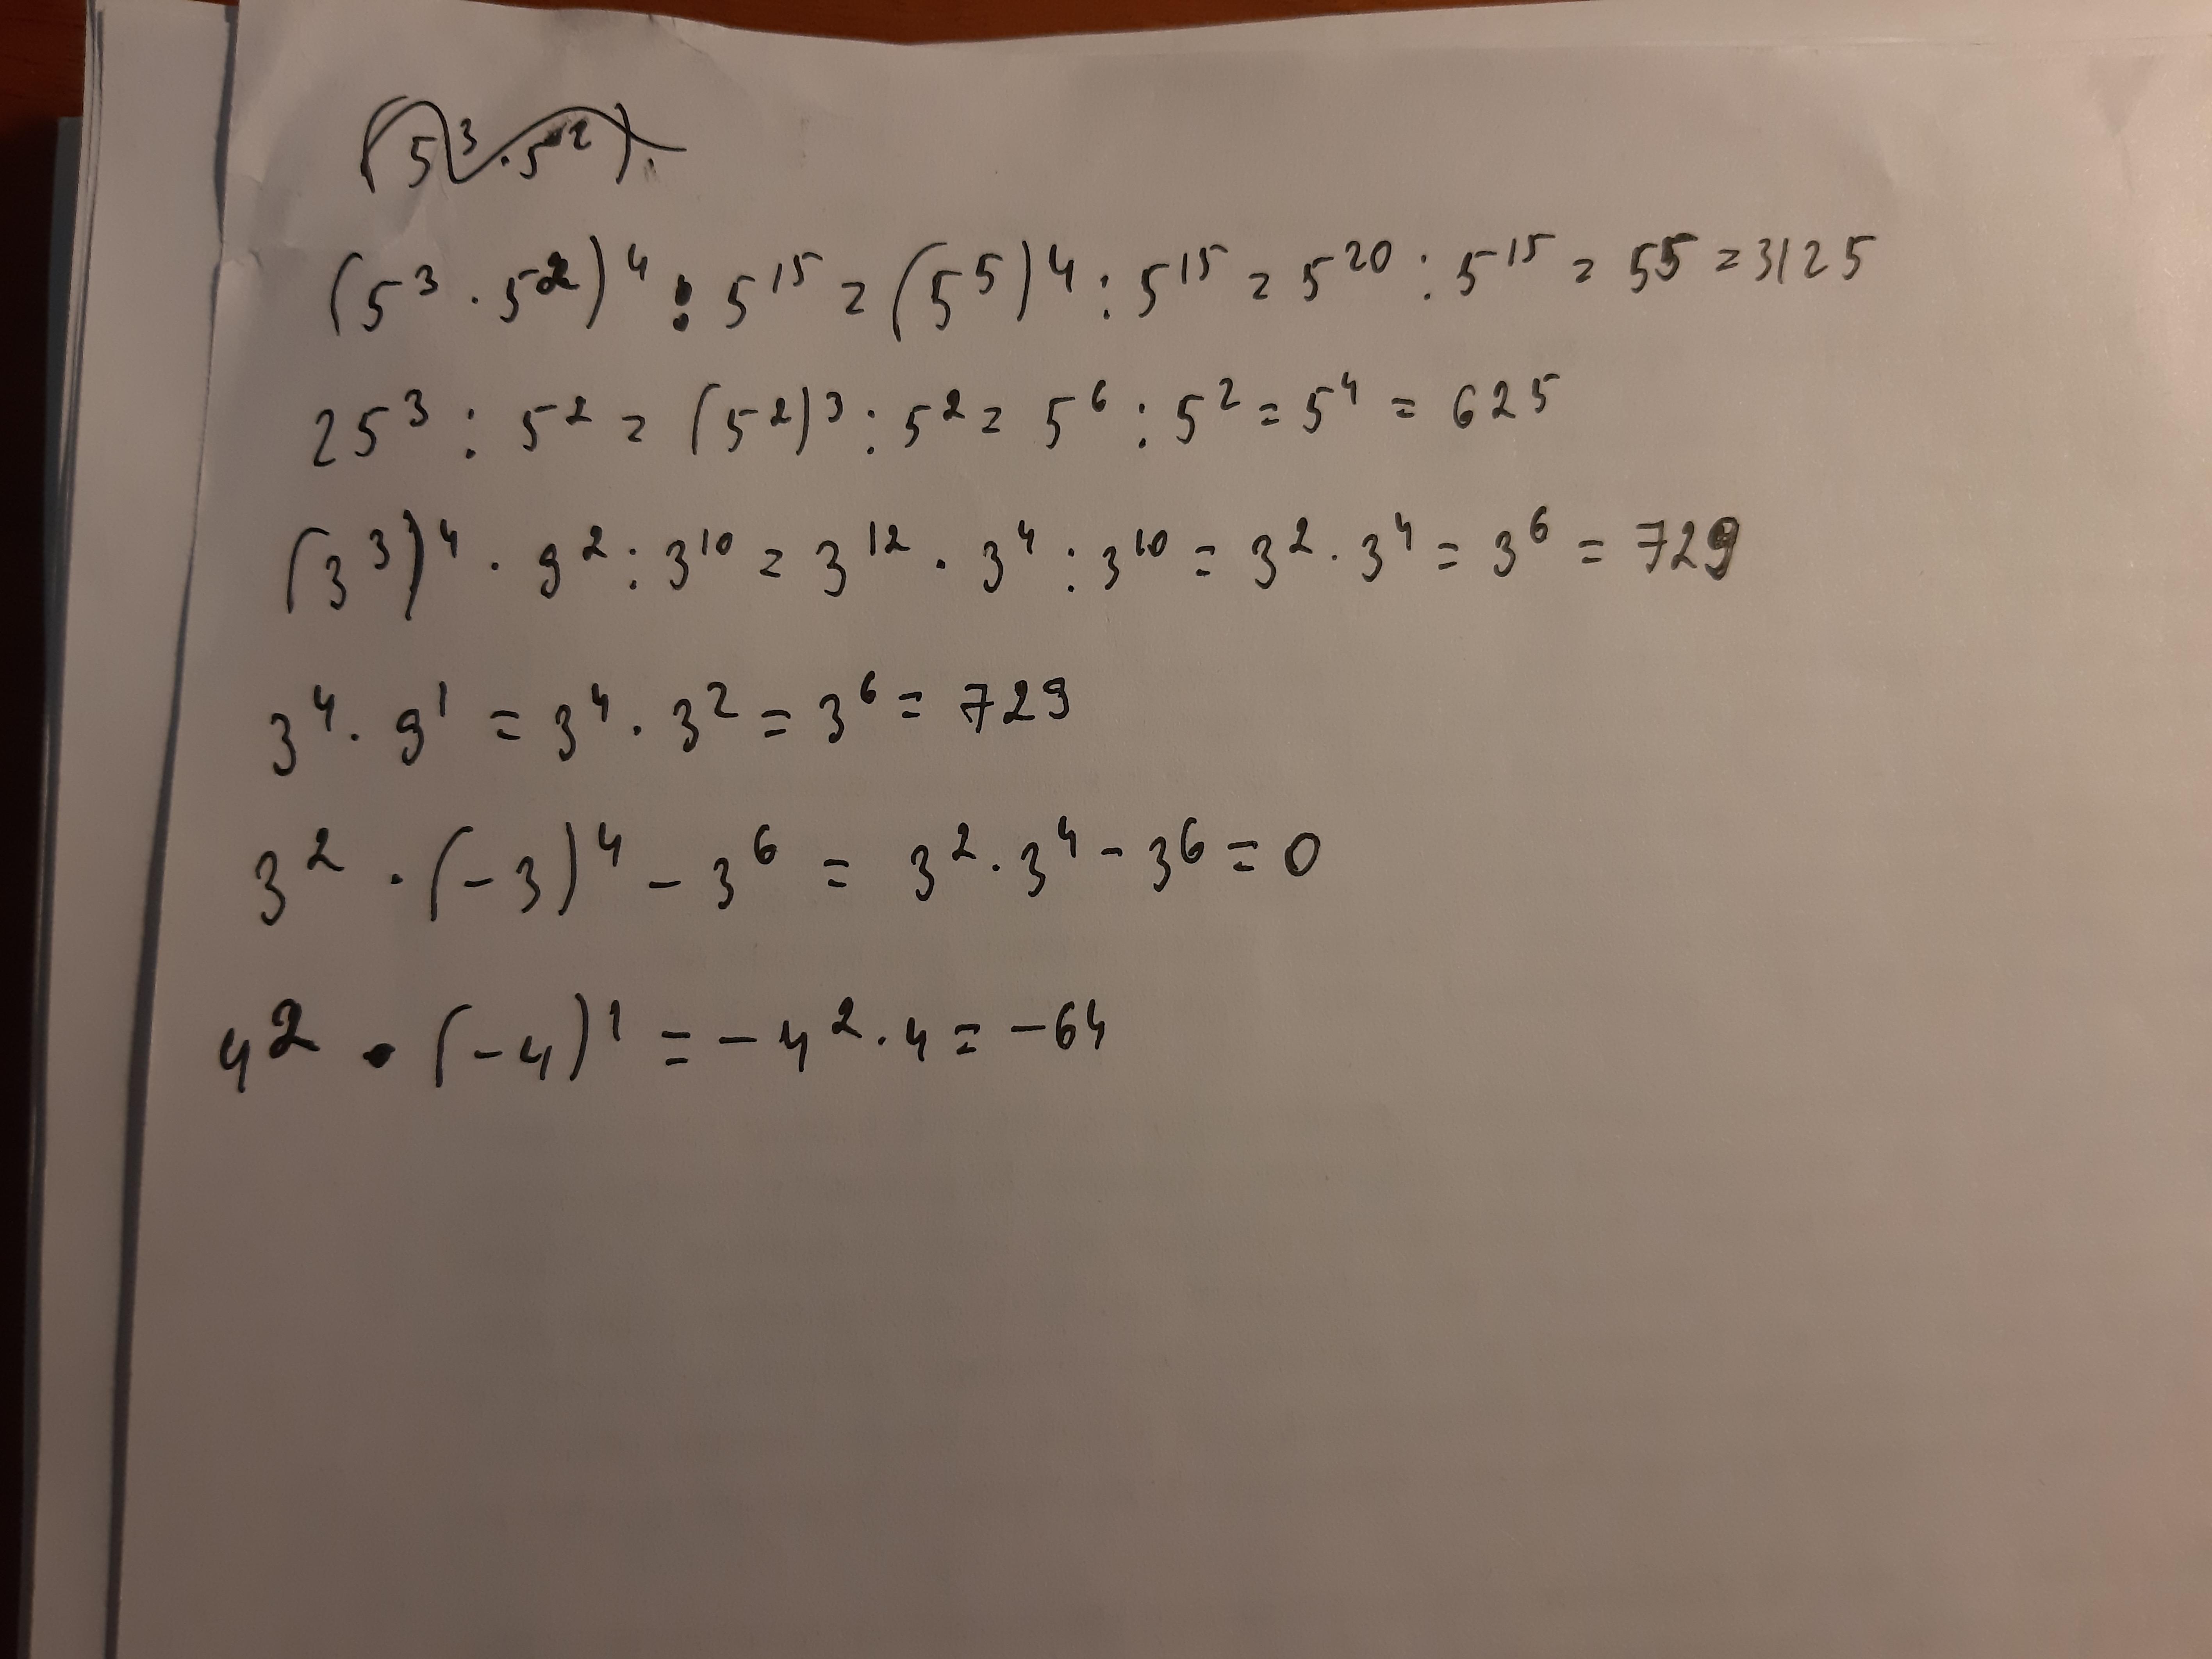 (5³·5²):
(5³·5²)⁴:5¹⁵=(5⁵)⁴:5¹⁵=5²⁰:5¹⁵=5⁵=3125
25³:5²=(5²)³:5²=5⁶:5²=5⁴=625
(3³)⁴·9²:3¹⁰=3¹²·3⁴:3¹⁰=3²·3⁴=3⁶=729
3⁴·9¹=3⁴·3²=3⁶=729
3²·(-3)⁴-3⁶=3²·3⁴-3⁶=0
4²·(-4)¹=-4²·4=-64